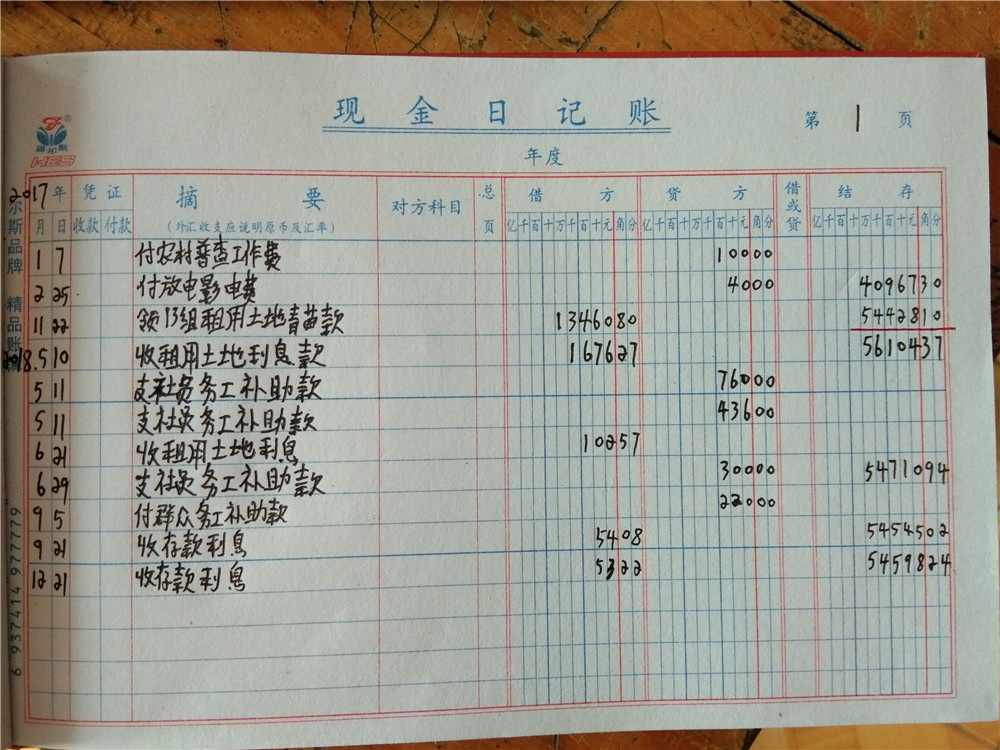 现金日记账
第 1 页
年度
福尔斯
HES
2017年 凭证 摘要 对方科目 总页 借方 贷方 借或贷 结存
月 日 收款 付款 (外汇收支应说明原币及汇率) 亿千百十万千百十元角分 亿千百十万千百十元角分 亿千百十万千百十元角分
1 7 付农村普查工作费 10000
2 25 付放电影电费 4000 4096730
11 22 领13组租用土地青苗款 1346080 5442810
2018.5 10 收租用土地利息款 167627 5610437
5 11 支社员务工补助款 76000
5 11 支社员务工补助款 43600
6 21 收租用土地利息 10257
6 29 支社员务工补助款 30000 5471094
9 5 付群众务工补助款 22000
9 21 收存款利息 5408 5454502
12 21 收存款利息 5322 5459824
尔斯品牌 精品账
6 937414 977779